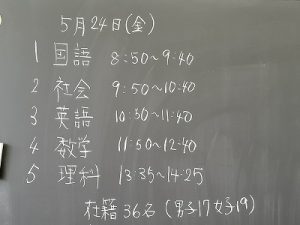 5月24日(金)
1 国語 8:50~9:40
2 社会 9:50~10:40
3 英語 10:50~11:40
4 数学 11:50~12:40
5 理科 13:35~14:25
在籍36名(男子17女子19)